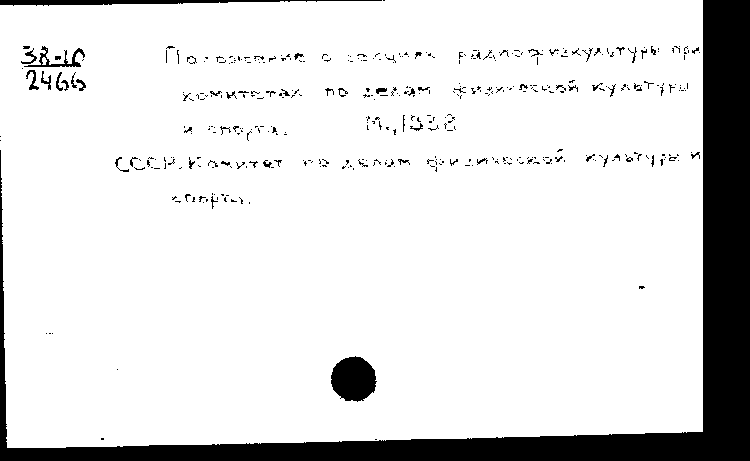 38-10
2466
Положение о секциях радиофизкультуры при
комитетах по делам физической культуры
и спорта. М., 1938
СССР. Комитет по делам физической культуры и
спорта.